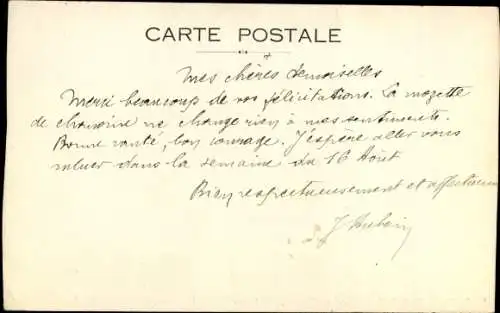 CARTE POSTALE
Mes chères demoiselles
Merci beaucoup de vos félicitations. La mozette
de chanoine ne change rien à mes sentiments.
Bonne santé, bon courage. J'espère aller vous
saluer dans la semaine du 16 Août
Bien respectueusement et affectueu
J